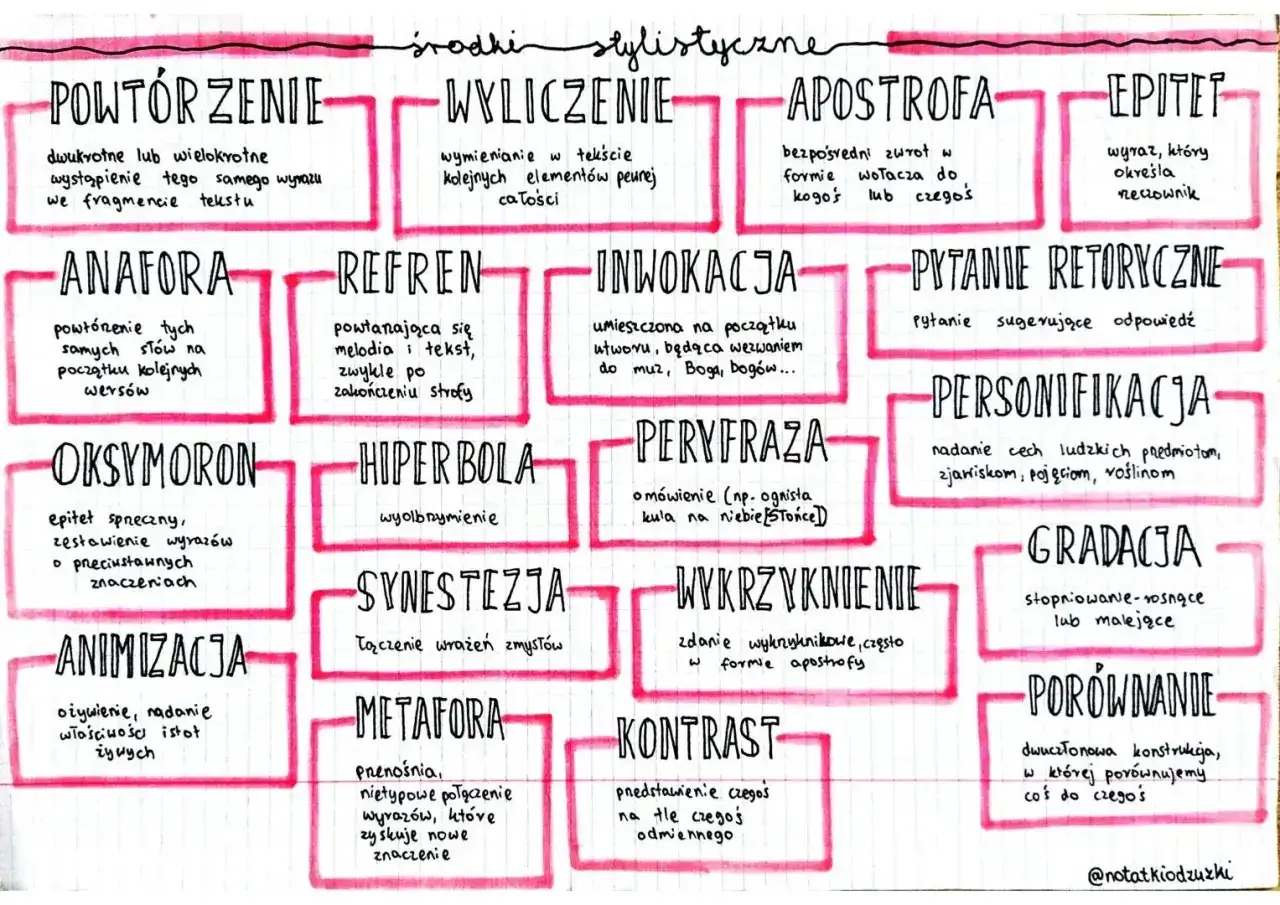 środki stylistyczne
POWTÓRZENIE
dwukrotne lub wielokrotne
wystąpienie tego samego wyrazu
we fragmencie tekstu
WYLICZENIE
wymienianie w tekście
kolejnych elementów pewnej
całości
APOSTROFA
bezpośredni zwrot w
formie wołacza do
kogoś lub czegoś
EPITET
wyraz, który
określa
rzeczownik
ANAFORA
powtórzenie tych
samych słów na
początku kolejnych
wersów
REFREN
powtarzająca się
melodia i tekst,
zwykle po
zakończeniu strofy
INWOKACJA
umieszczona na początku
utworu, będąca wezwaniem
do muz, Boga, bogów...
PYTANIE RETORYCZNE
pytanie sugerujące odpowiedź
PERSONIFIKACJA
nadanie cech ludzkich przedmiotom,
zjawiskom, pojęciom, roślinom
OKSYMORON
epitet sprzeczny,
zestawienie wyrazów
o przeciwstawnych
znaczeniach
HIPERBOLA
wyolbrzymienie
PERYFRAZA
omówienie (np. ognista
kula na niebie [Słońce])
GRADACJA
stopniowanie - rosnące
lub malejące
SYNESTEZJA
łączenie wrażeń zmysłów
WYKRZYKNIENIE
zdanie wykrzyknikowe, często
w formie apostrofy
ANIMIZACJA
ożywienie, nadanie
właściwości istot
żywych
METAFORA
przenośnia,
nietypowe połączenie
wyrazów, które
zyskuje nowe
znaczenie
KONTRAST
przedstawienie czegoś
na tle czegoś
odmiennego
PORÓWNANIE
dwuczłonowa konstrukcja,
w której porównujemy
coś do czegoś
@notatkiodzuzki